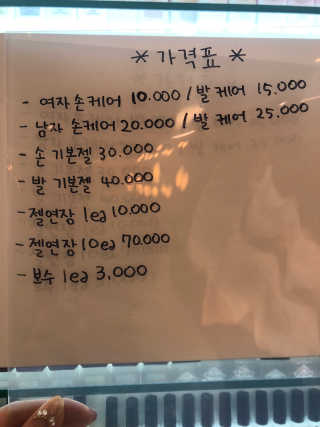 * 가격표 *
- 여자 손케어 10.000 / 발 케어 15.000
- 남자 손케어 20.000 / 발 케어 25.000
- 손 기본젤 30.000
- 발 기본젤 40.000
- 젤연장 1ea 10.000
- 젤연장 10ea 70.000
- 보수 1ea 3.000